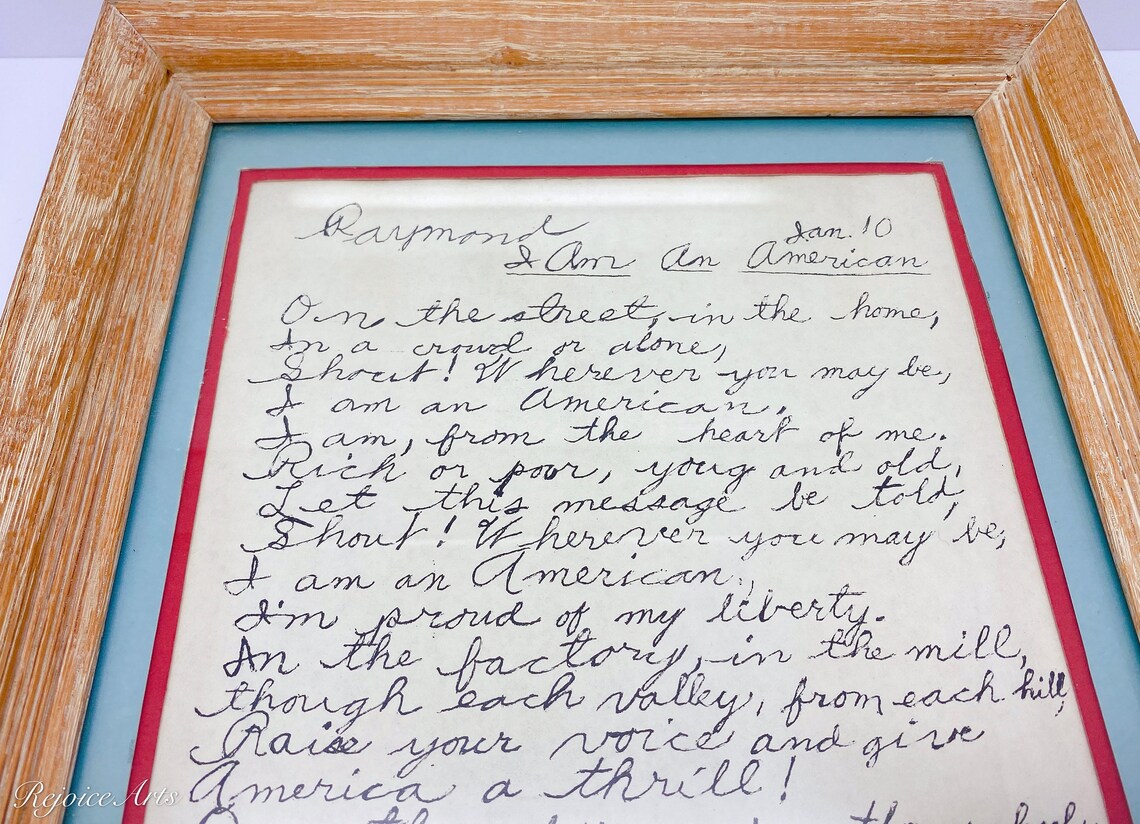 Raymond
Jan. 10
I Am An American
On the street, in the home,
In a crowd or alone,
Shout! Wherever you may be,
I am an American,
I am, from the heart of me.
Rich or poor, youg and old,
Let this message be told,
Shout! Wherever you may be,
I am an American,
I'm proud of my liberty.
In the factory, in the mill,
though each valley, from each hill,
Raise your voice and give
America a thrill!
Rejoice Arts